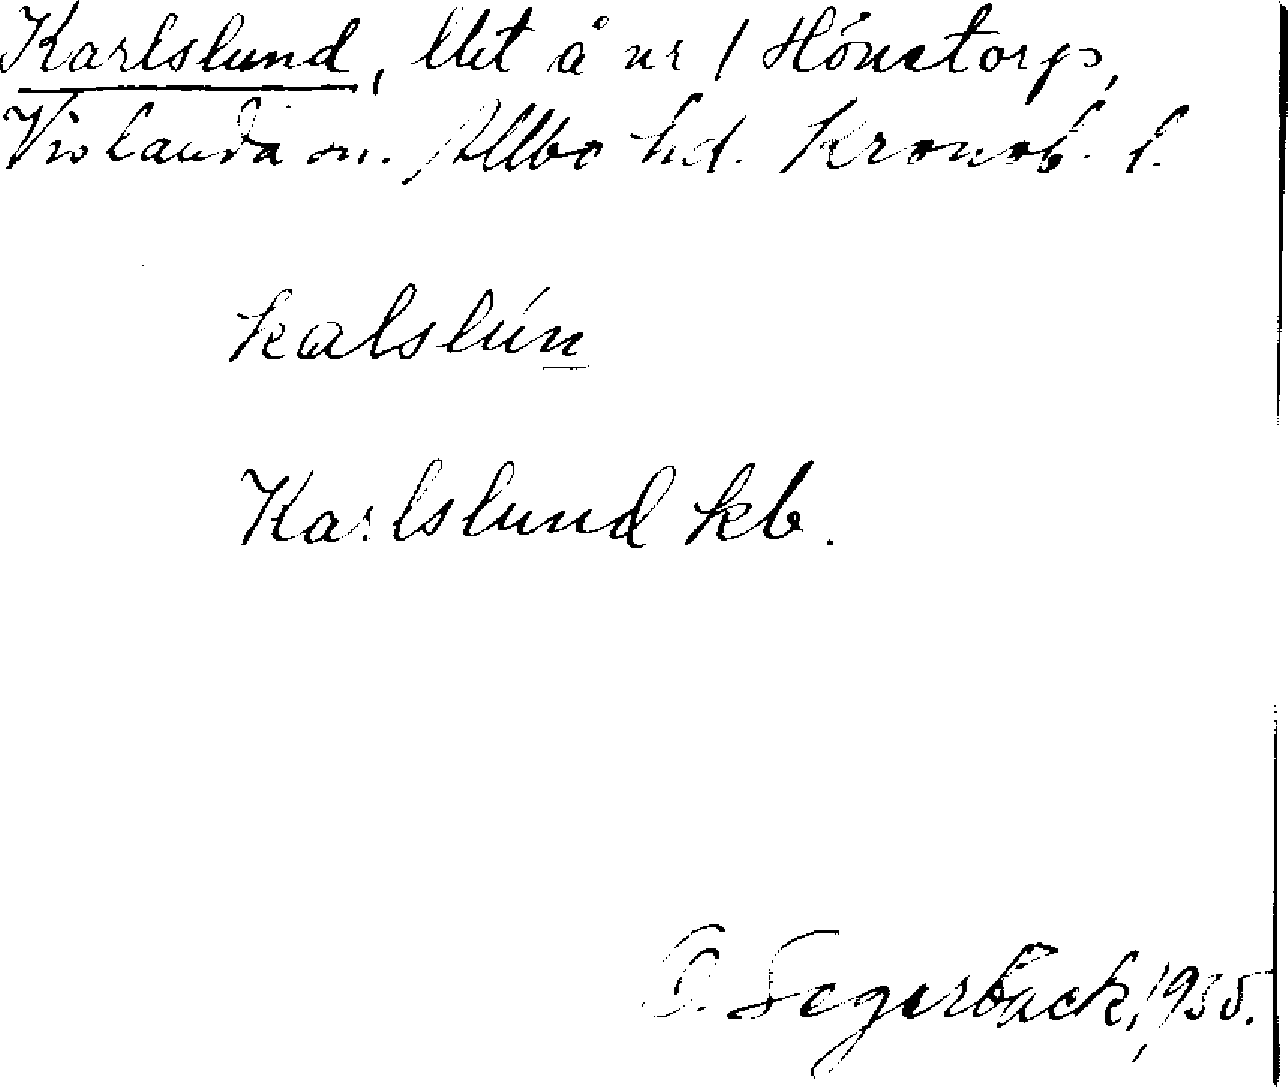 Karlslund, lht å nr 1 Hönetorp,
Vislanda sn. Allbo hd. Kronob. l.
kalslún
Karlslund kb.
B. Segerbäck, 1935.